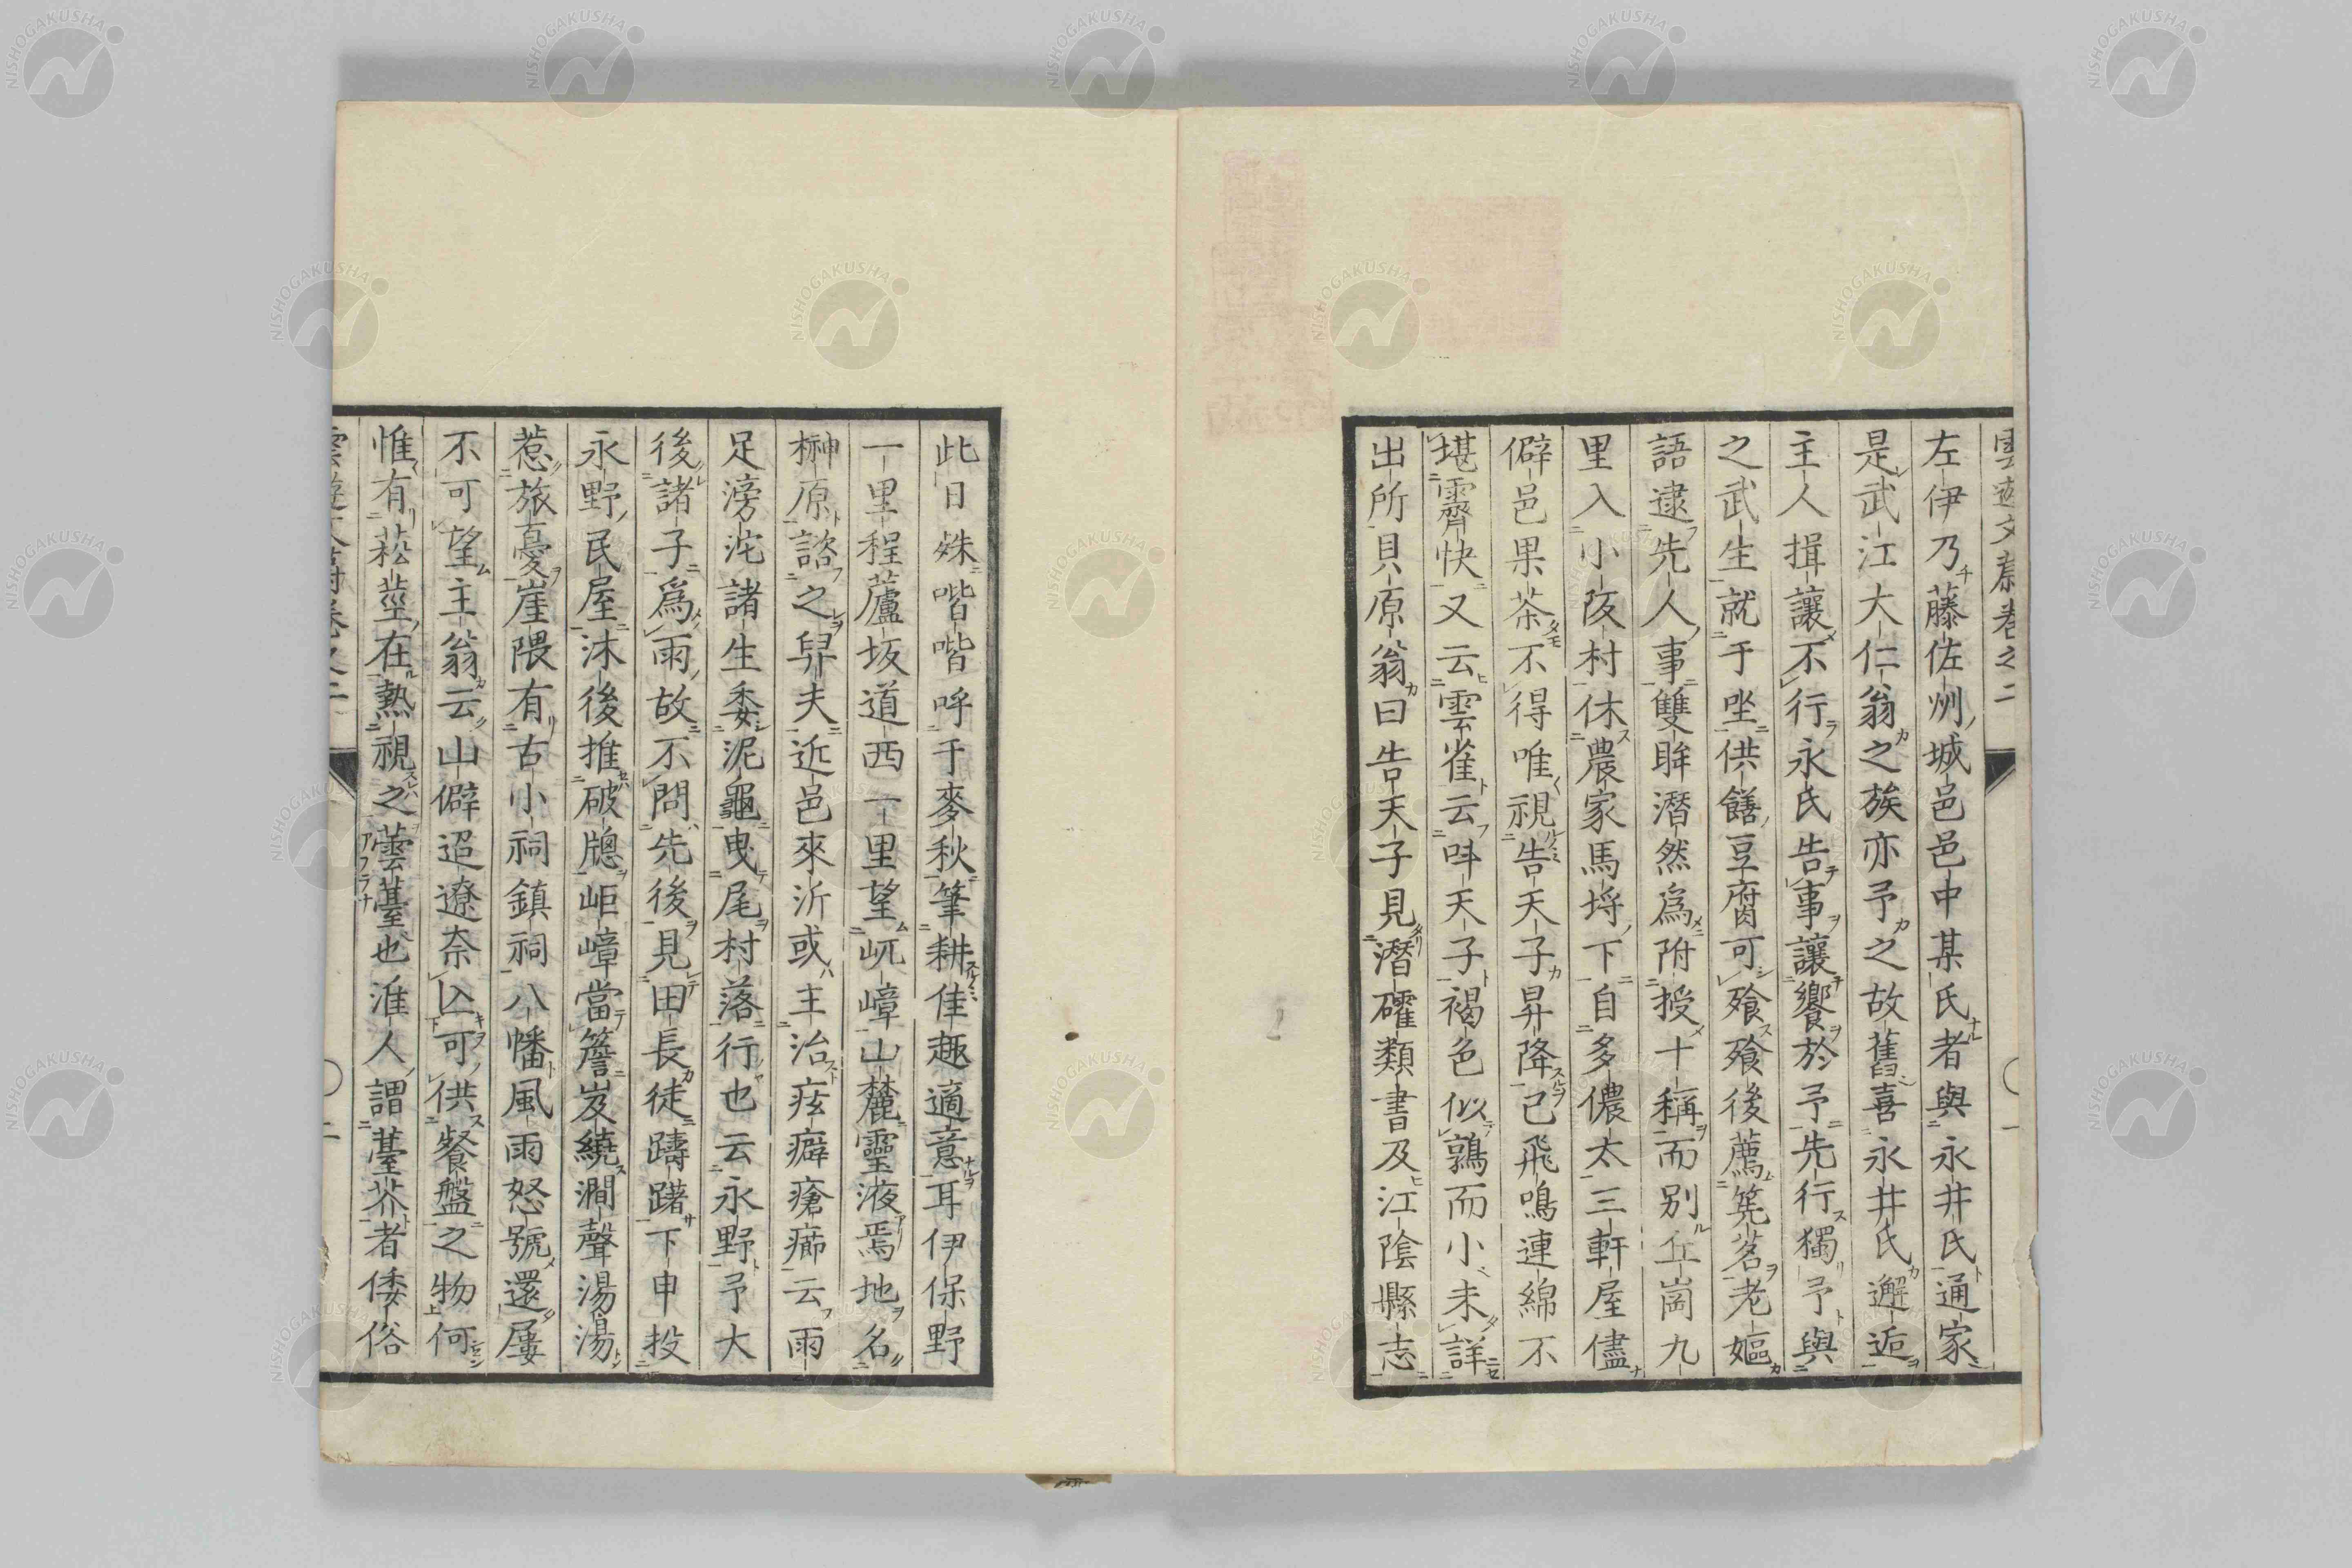 左伊乃藤佐州城邑邑中某氏者與永井氏通家
是武江大仁翁之族亦予之故舊喜永井氏邂逅
主人揖讓不行永氏告事讓饗於予先行獨予與
之武生就于坐供饍豆腐可飱飱後薦筅茗老嫗
語逮先人事雙眸潛然爲附授十稱而別丘崗九
里入小阪村休農家馬埒下自多儂太三軒屋儘
僻邑果茶不得唯視告天子昇降己飛鳴連綿不
堪霽快又云雲雀云呌天子褐色似鶉而小未詳
出所貝原翁曰告天子見潛確類書及江陰縣志
此日姝喈喈呼于麥秋筆耕佳趣適意耳伊保野
一里程蘆坂道西一里望屼嶂山麓靈液焉地名
榊原諮之舁夫近邑來浴或主治痃癖瘡癤云雨
足滂沱諸生委泥龜曳尾村落行也云永野予大
後諸子爲雨故不問先後見田長徒躊躇下申投
永野民屋沐後推破牕岠嶂當簷岌繞澗聲湯湯
惹旅憂崖隈有古小祠鎮祠八幡風雨怒號還屢
不可望主翁云山僻迢遼奈亾可供餐盤之物何
惟有菘莖在熟視之蕓薹也淮人謂薹芥者倭俗
雲遊文蔚卷之二